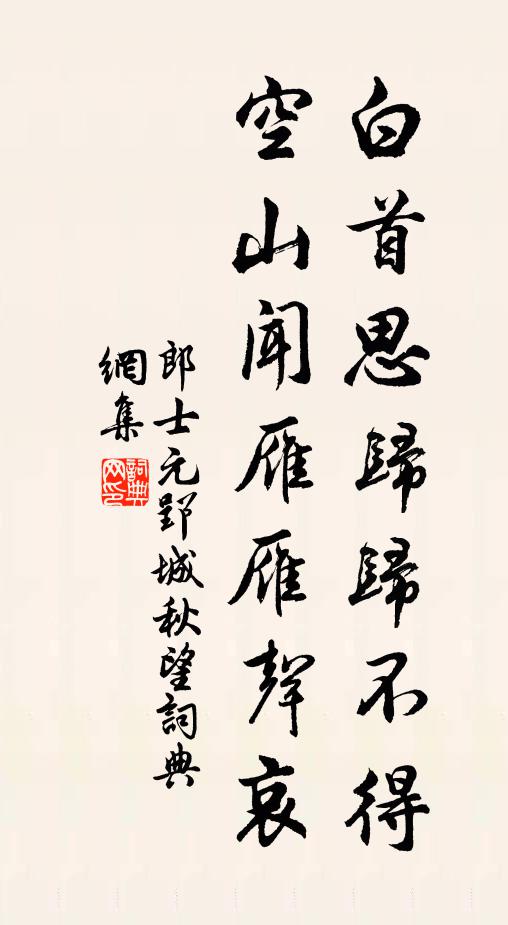 白首思歸歸不得
空山聞雁雁聲哀
郎士元郢城秋望詞典
網集
詞典網印